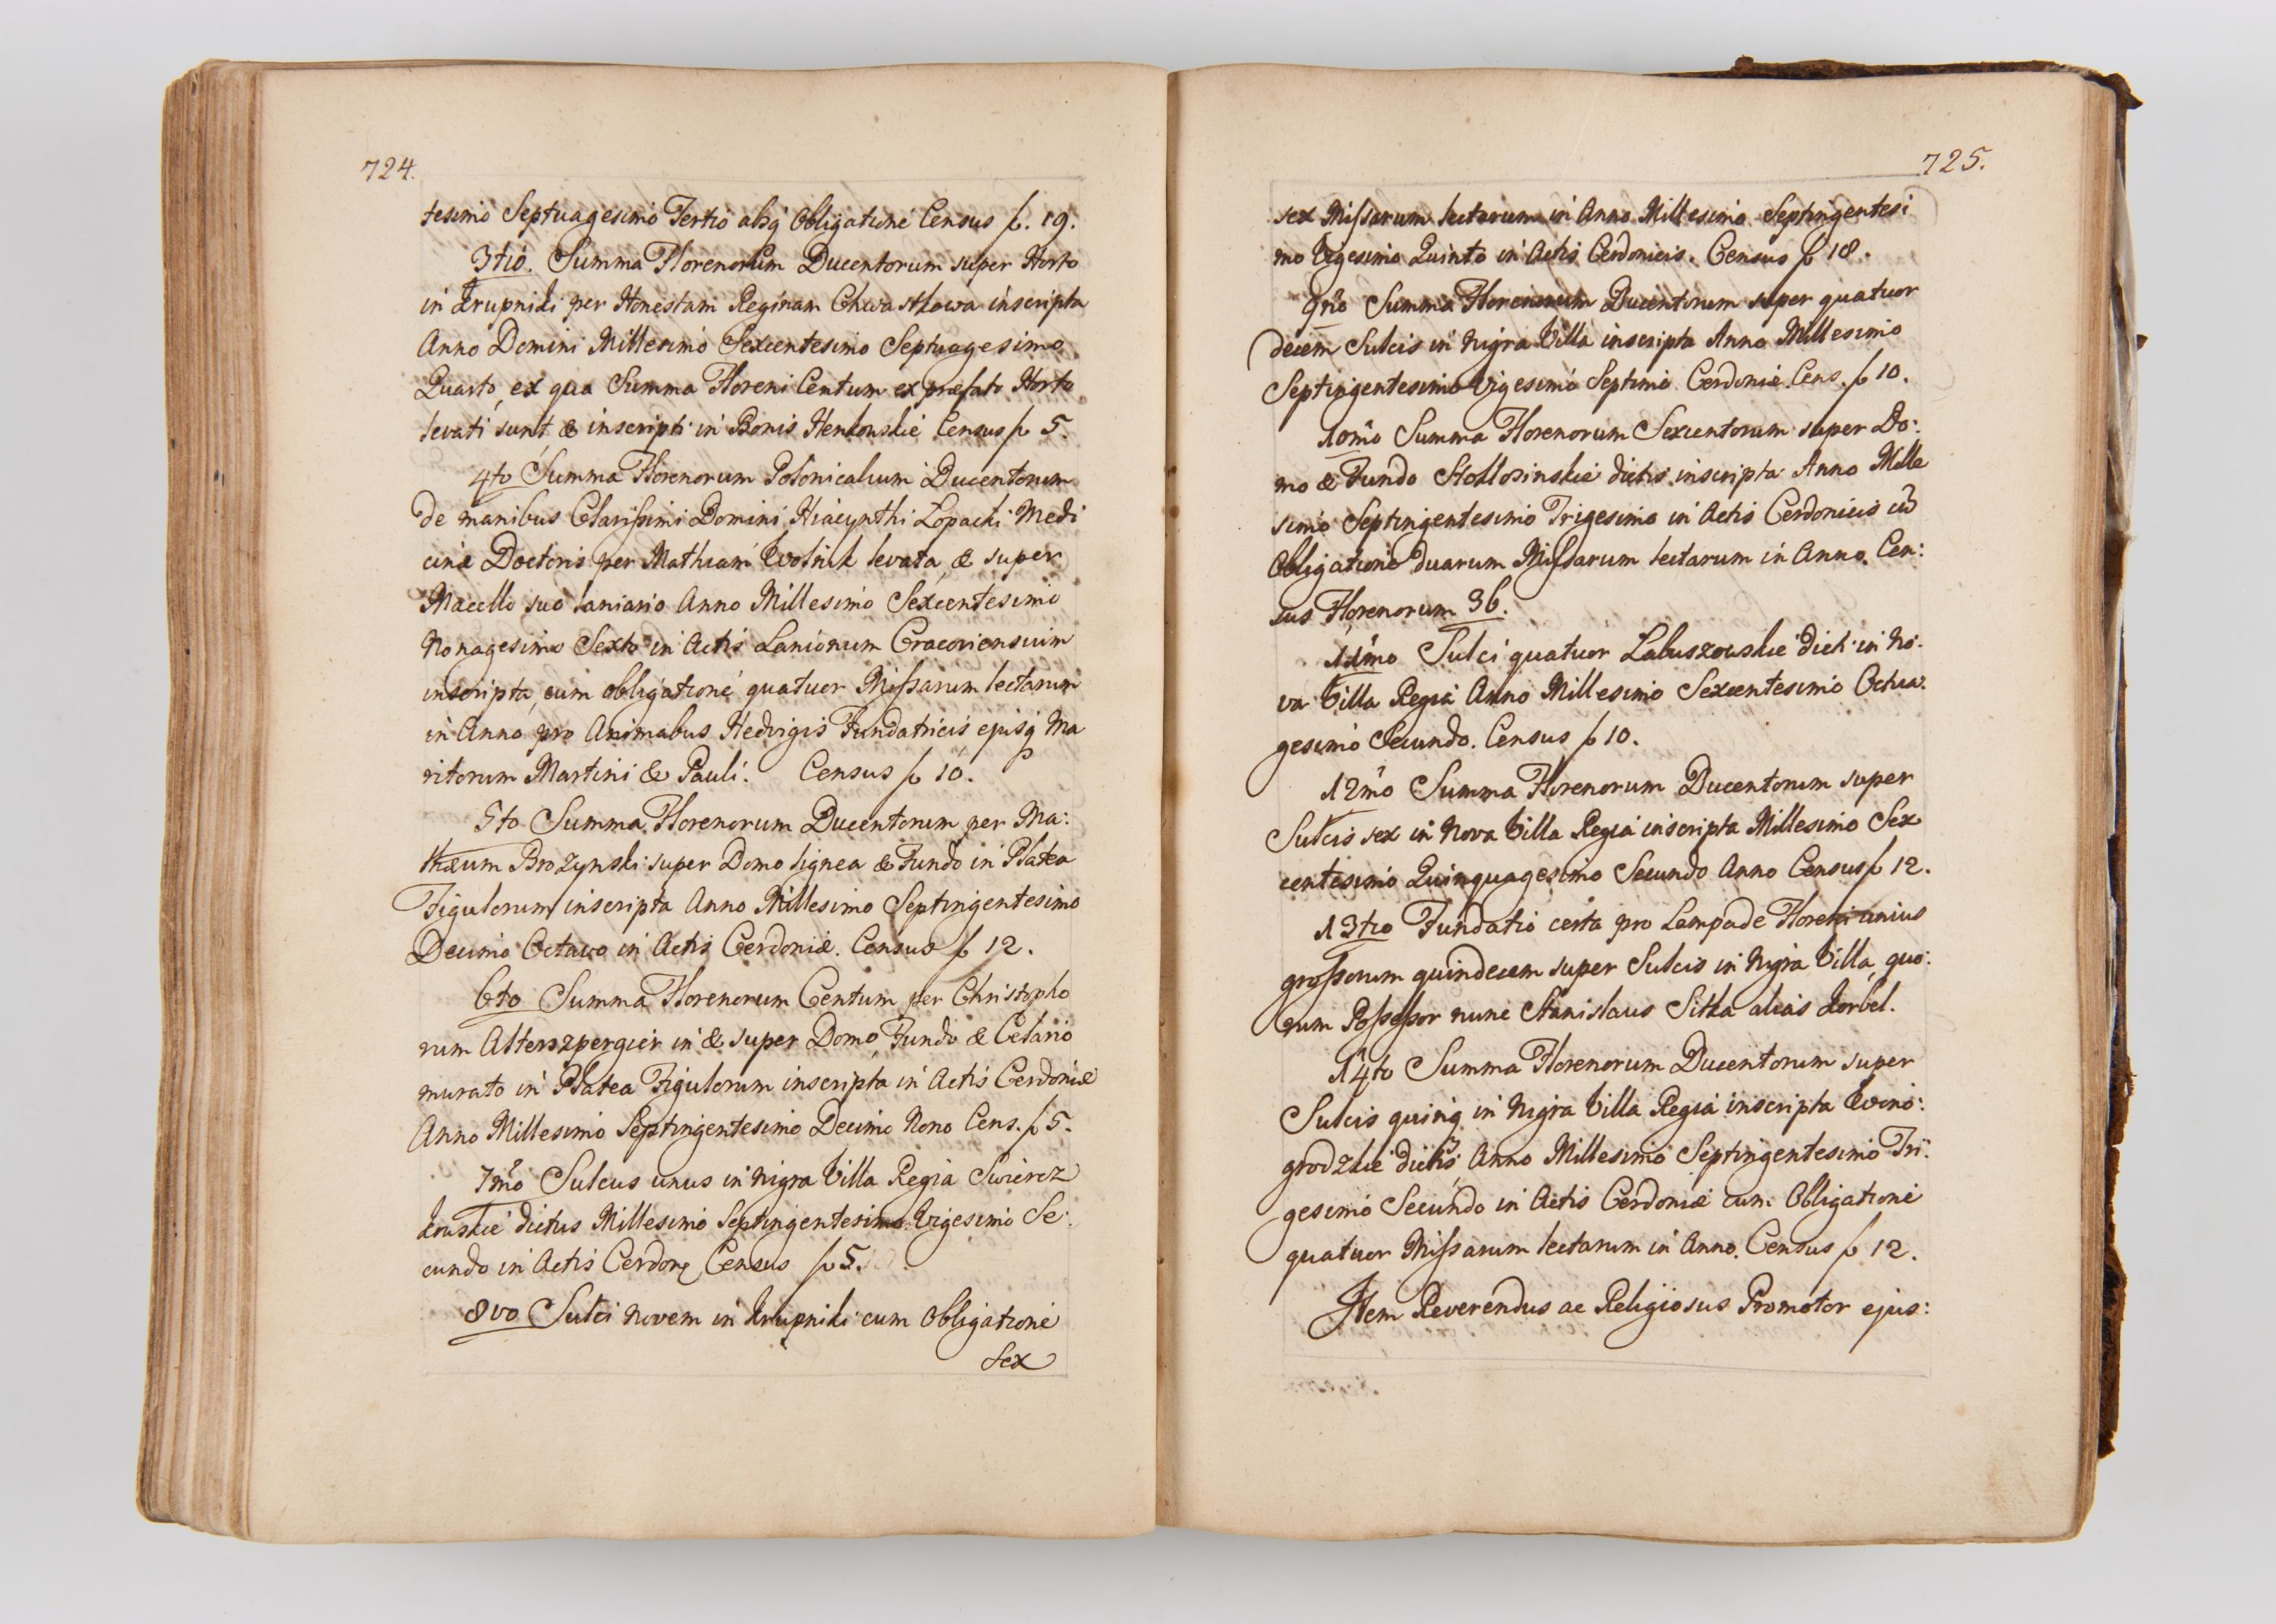 724.
tesimo Septuagesimo Tertio absq Obligatione Census f. 19.
3tio. Summa Florenorum Ducentorum super Horto
in Krupniki per Honestam Reginam Chwastkowa inscripta
Anno Domini Millesimo Sexcentesimo Septuagesimo
Quarto, ex qua Summa Floreni Centum ex præfato Horto
levati sunt & inscripti in Bonis Henkowskie Census f 5.
4to Summa Florenorum Polonicalium Ducentorum
de manibus Clarissimi Domini Hiacynthi Lopacki Medi
cinæ Doctoris per Mathiam Wolnik levata, & super
Macello suo laniario Anno Millesimo Sexcentesimo
Nonagesimo Sexto in Actis Lanionum Cracoviensium
inscripta, cum obligatione quatuor Missarum lectarum
in Anno pro Animabus Hedvigis Fundatricis ejusq Ma
ritorum Martini & Pauli. Census f 10.
5to Summa Florenorum Ducentorum per Ma:
thæum Brozynski super Domo lignea & Fundo in Platea
Figulorum inscripta Anno Millesimo Septingentesimo
Decimo Octavo in Actis Cerdoniæ. Census f 12.
6to Summa Florenorum Centum per Christopho
rum Alterszpergier in & super Domo, Fundo & Celario
murato in Platea Figulorum inscripta in Actis Cerdoniæ
Anno Millesimo Septingentesimo Decimo Nono Cens. f 5.
7mo Sulcus unus in Nigra Villa Regia Swiercz
kowskie dictus Millesimo Septingentesimo Vigesimo Se:
cundo in Actis Cerdonę Census f 5.
8vo Sulci novem in Krupniki cum Obligatione
Sex
725.
sex Missarum lectarum in Anno Millesimo Septingentesi
mo Vigesimo Quinto in Actis Cerdonicis. Census f 18.
9no Summa Florenorum Ducentorum super quatuor
decem Sulcis in Nigra Villa inscripta Anno Millesimo
Septingentesimo Vigesimo Septimo Cerdoniæ. Cens. f 10.
10mo Summa Florenorum Sexcentorum super Do:
mo & Fundo Stoklosinskie dictis inscripta Anno Mille
simo Septingentesimo Trigesimo in Actis Cerdonicis cũ
Obligatione duarum Missarum lectarum in Anno. Cen:
sus Florenorum 36.
11mo Sulci quatuor Labuszowskie dicti in No:
va Villa Regia Anno Millesimo Sexcentesimo Octua:
gesimo Secundo. Census f 10.
12mo Summa Florenorum Ducentorum super
Sulcis sex in Nova Villa Regia inscripta Millesimo Sex
centesimo Quinquagesimo Secundo Anno Census f 12.
13tio Fundatio certa pro Lampade Floreni unius
grossorum quindecem super Sulcis in Nigra Villa, quo:
rum Possessor nunc Stanislaus Sitka alias Korbel.
14to Summa Florenorum Ducentorum super
Sulcis quinq in Nigra Villa Regia inscripta Wino:
grodzkie dictis, Anno Millesimo Septingentesimo Tri:
gesimo Secundo in Actis Cerdoniæ cum Obligatione
quatuor Missarum lectarum in Anno. Census f 12.
Item Reverendus ac Religiosus Promotor ejus: